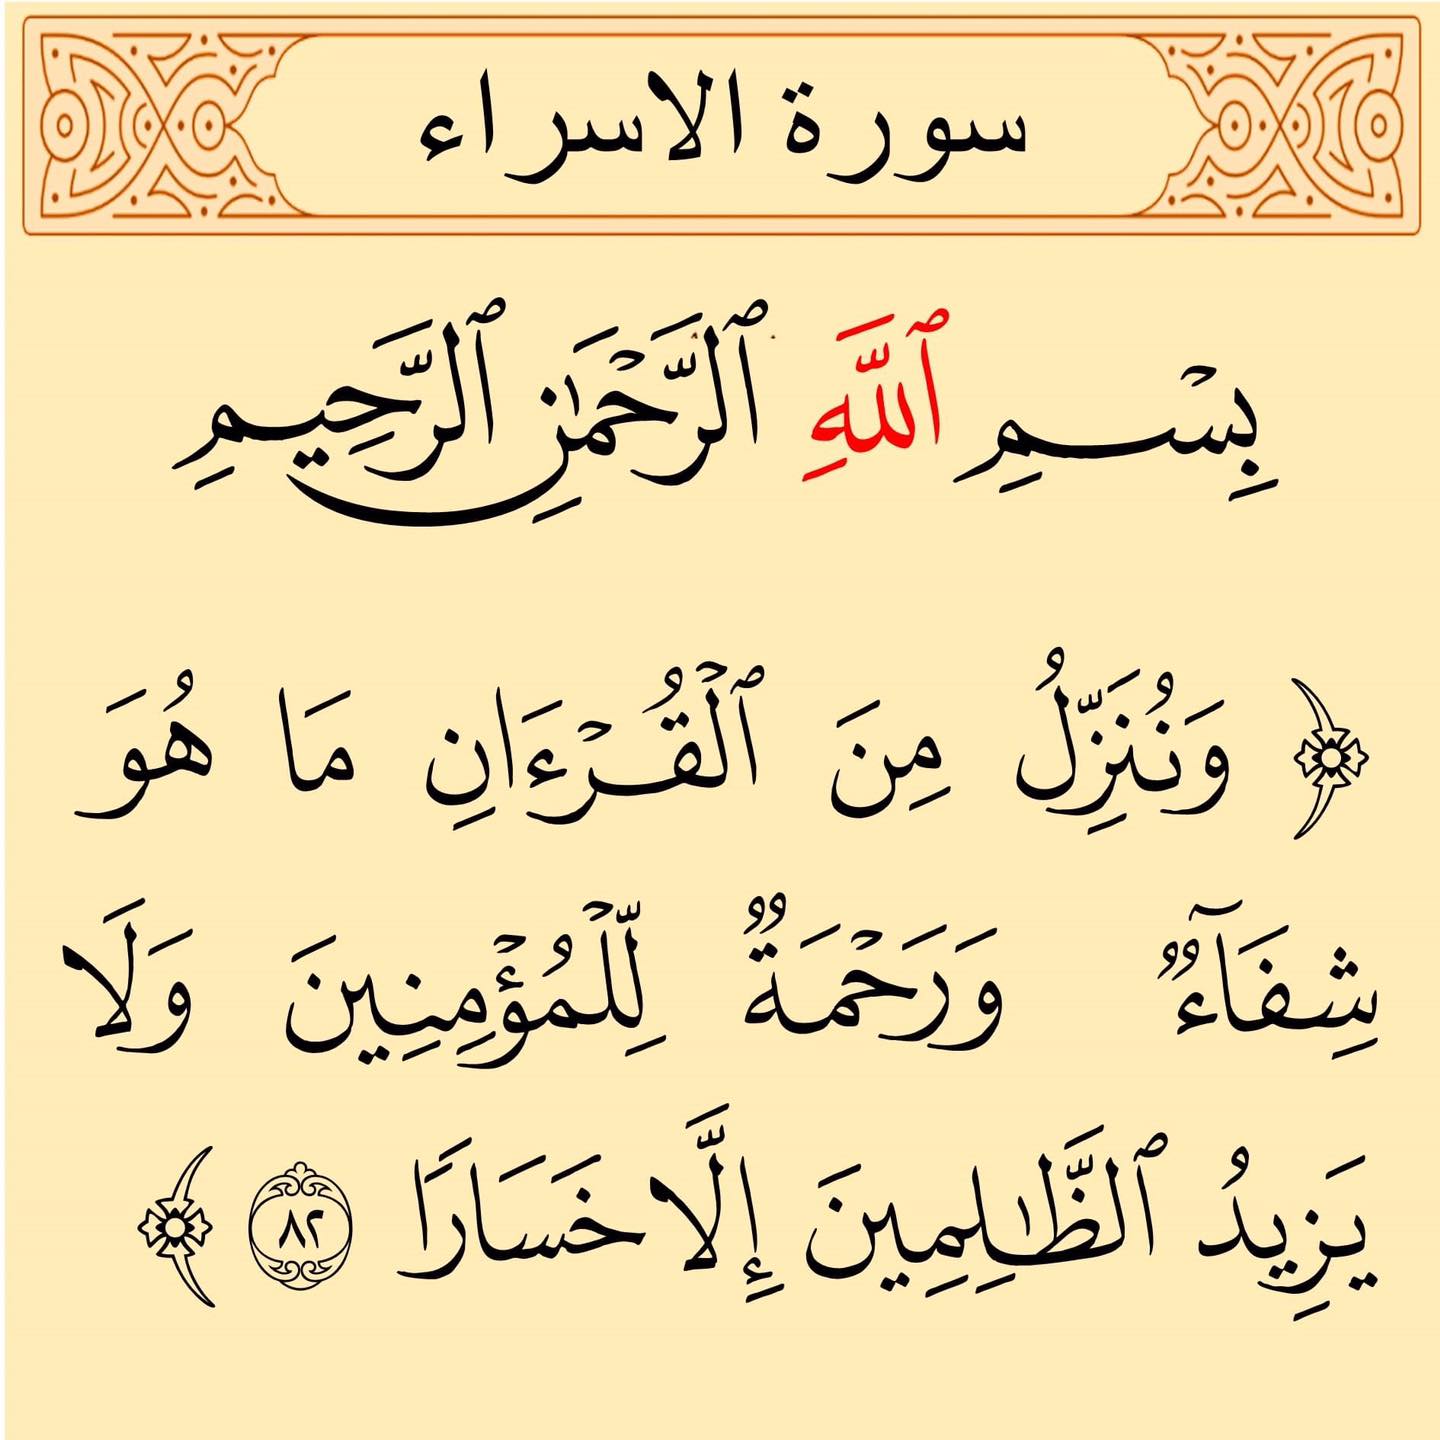 سورة الاسراء
بِسْمِ ٱللَّهِ ٱلرَّحْمَٰنِ ٱلرَّحِيمِ
﴿ وَنُنَزِّلُ مِنَ ٱلْقُرْءَانِ مَا هُوَ
شِفَآءٌ وَرَحْمَةٌ لِّلْمُؤْمِنِينَ وَلَا
يَزِيدُ ٱلظَّٰلِمِينَ إِلَّا خَسَارًا ٨٢ ﴾